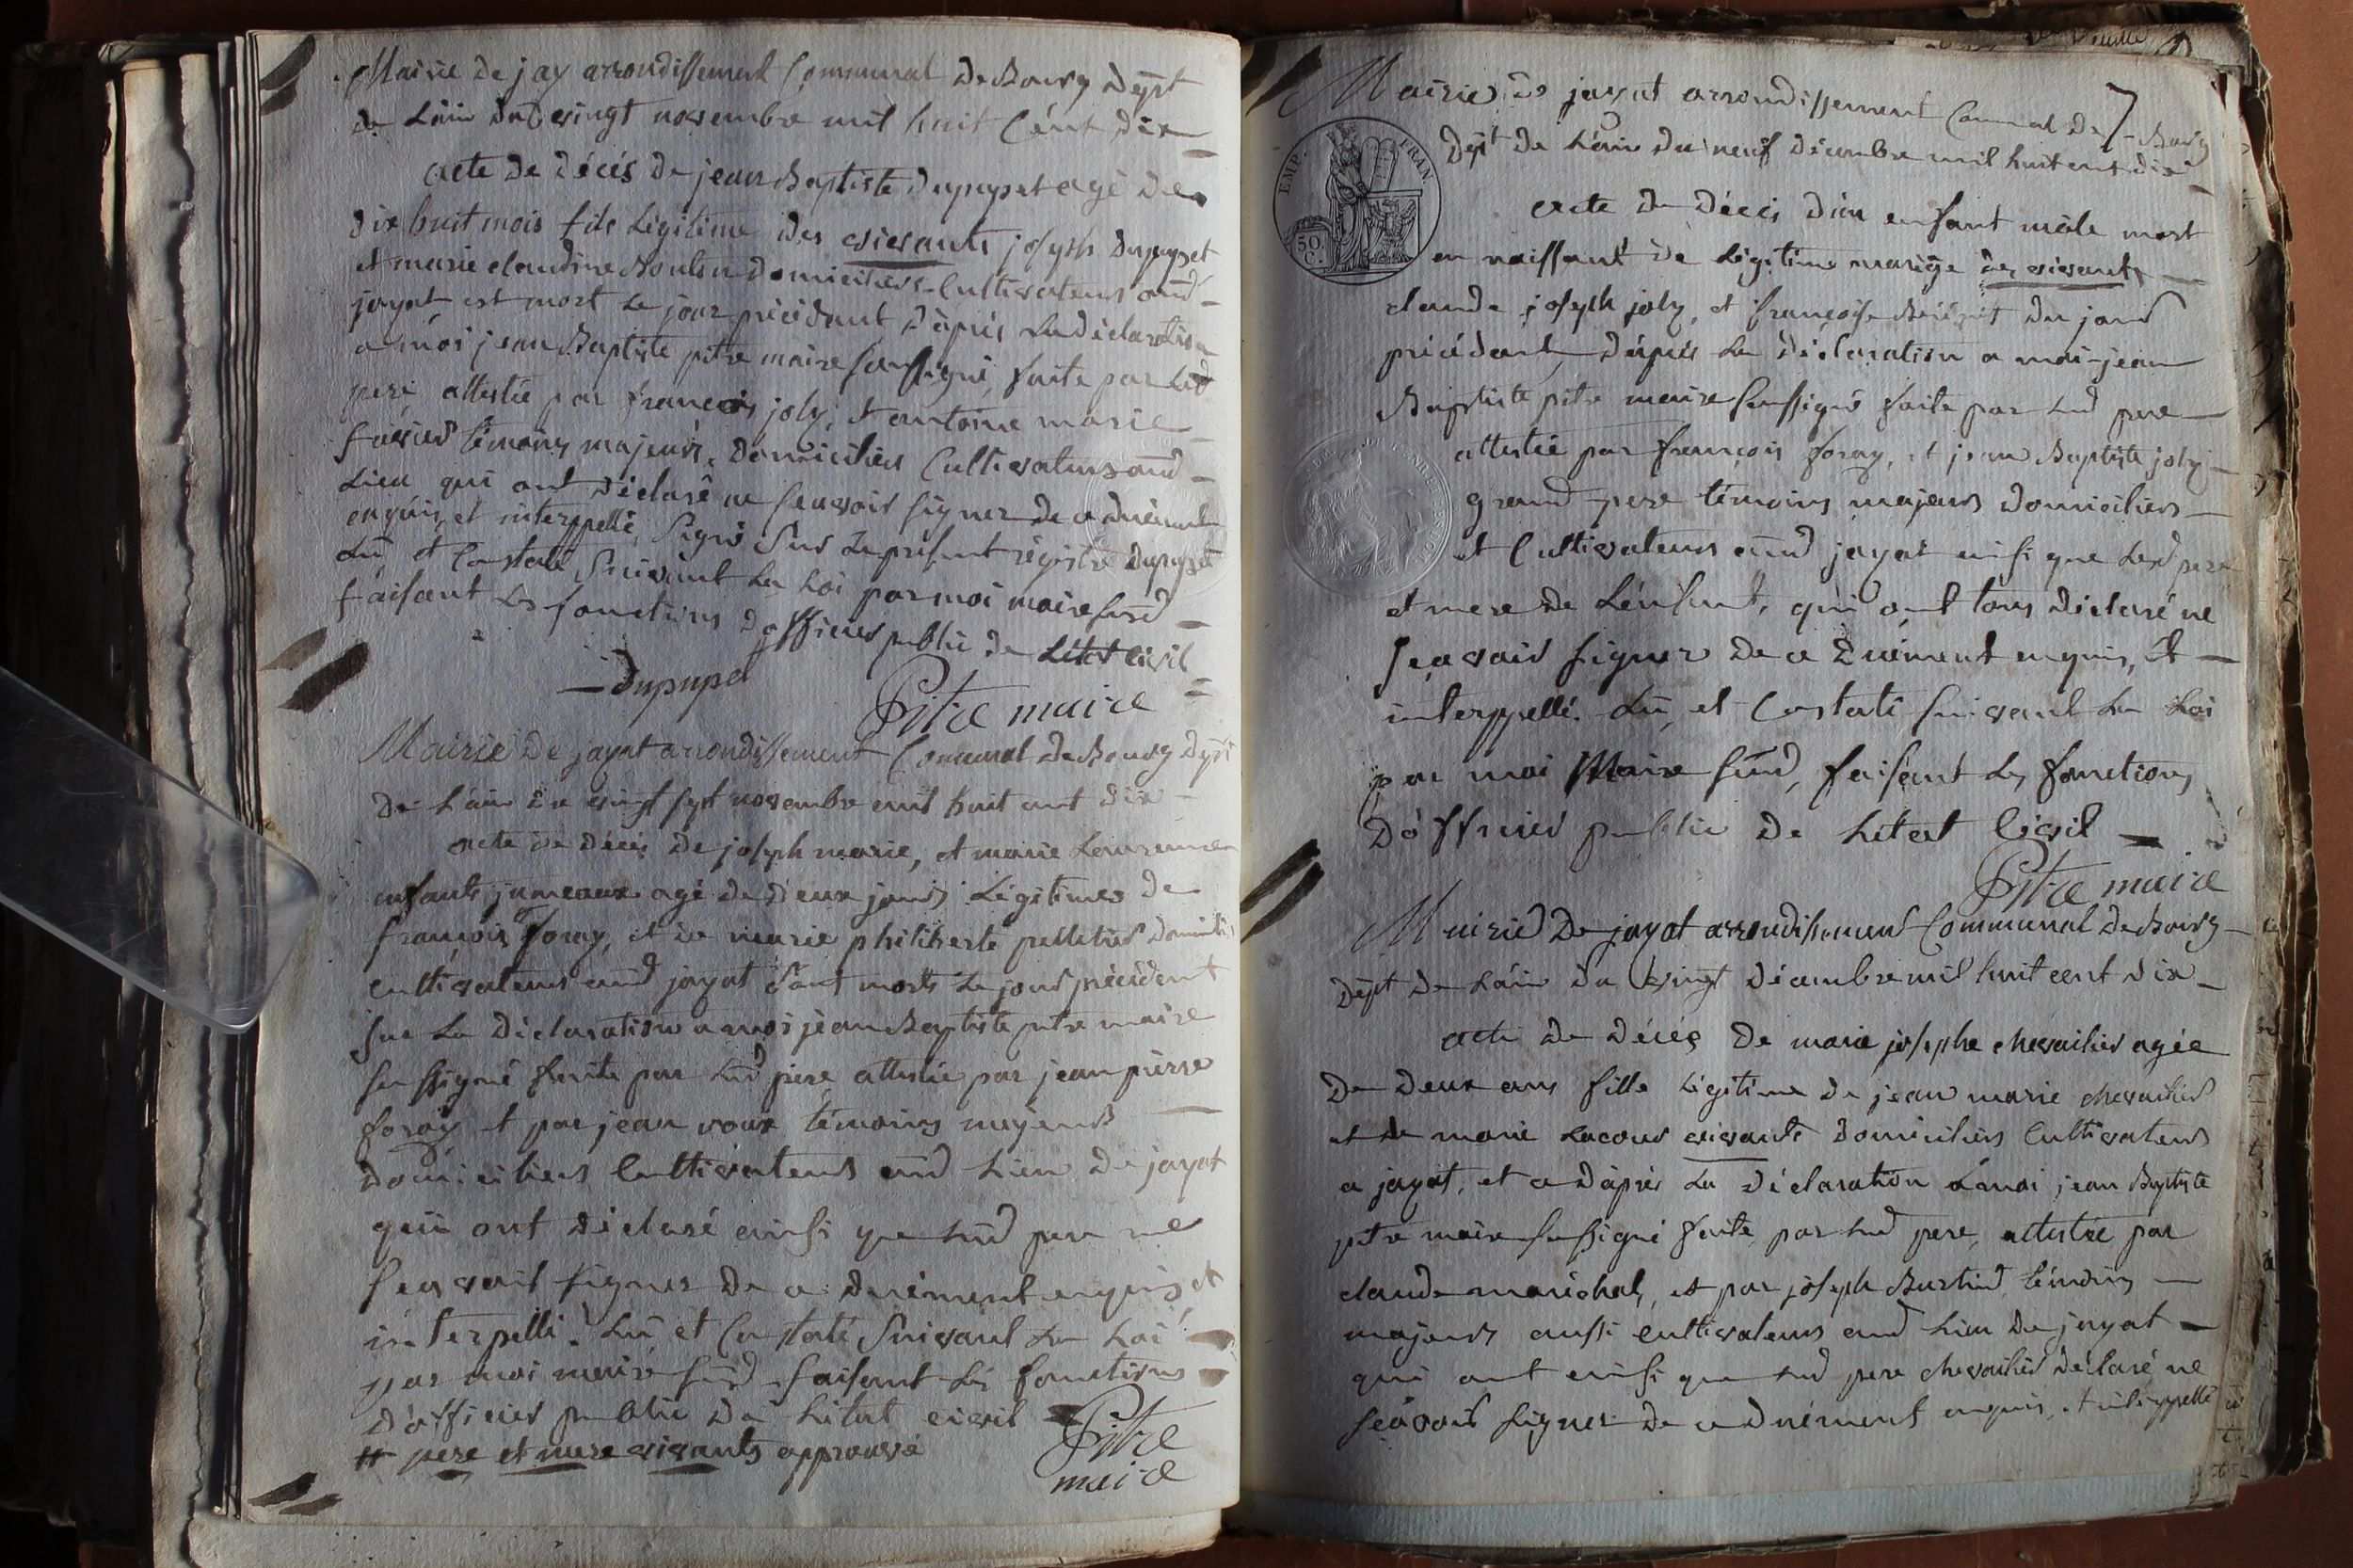 Mairie de jay arrondissement Communal de Bourg dept
de L'ain du vingt novembre mil huit Cent dix
acte de décès de jean Baptiste dupupet agé de
dix huit mois fils Légitime des vivants joseph dupupet
et marie claudine Boulon domiciliers Cultivateurs aud
jayat est mort Le jour précédant d'après La déclaration
a moi jean Baptiste pitre maire soussigné, faite par Led
pere attestée par francois joly, et antoine marie
témoins majeurs, domiciliers Cultivateurs aud
Lieu qui ont déclaré ne seavoir signer de ce duement
enquis, et interppellé, signé sur Le présent régistre dupupet
Lu, et Constaté suivant La Loi par moi maire susd
faisant Les fonctions d'officier public de Létat civil
dupupet
Pitre maire
Mairie de jayat arrondissement Communal de Bourg dept
de L'ain du vingt sept novembre mil huit cent dix
acte de décès de joseph marie, et marie Laurence
enfants jumeaux agé de deux jours Légitimes de
françois foray, et de marie philiberte pelletier
cultivateurs aud jayat sont morts Le jour précédent
sur La déclaration a moi jean Baptiste pitre maire
soussigné faite par Lud pere, attestée par jean pierre
foray et par jean voux témoins majeurs
domiciliers Cultivateurs aud Lieu de jayat
qui ont déclaré ainsi que Lud pere ne
seavoir signer de ce duement enquis et
interpellé. Lu et Constaté suivant La Loi
par moi maire susd faisant Les fonctions
d'officier public de Létat civil
# pere et mere vivants approuvé
Pitre
maire
7
Mairie de jayat arrondissement Communal de Bourg
dept de L'ain du neuf décembre mil huit cent dix
EMP. FRAN.
50.
C.
acte de décès d'un enfant mâle mort
en naissant de Légitime mariage des vivants
claude joseph joly, et françoise du jour
précédant, dapres La déclaration a moi jean
Baptiste pitre maire soussigné faite par Lud pere
attestée par françois foray, et jean Baptiste joly
grand pere témoins majeurs domiciliers
et Cultivateurs aud jayat ainsi que Lesd pere
et mere de Lénfant, qui ont tous déclaré ne
seavoir signer de ce duement enquis, et
interppellé. Lu, et Costaté suivant La Loi
par moi Maire susd, faisant Les fonctions
d'officier public de Létat Civil
Pitre maire
Mairie De jayat arrondissement Communal de Bourg
dept de L'ain du vingt décembre mil huit cent dix
acte de décès de marie josephe chevailier agée
De deux ans fille Légitime de jean marie chevailier
et de marie Lacour vivants domiciliers Cultivateurs
a jayat, et ce d'après La déclaration a moi jean Baptiste
pitre maire soussigné faite par Lud pere, attestée par
claude maréchal, et par joseph témoins
majeurs aussi cultivateurs aud Lieu de jayat
qui ont ainsi que Lud pere chevailier déclaré ne
seavoir signer de ce duement enquis, et interppellé